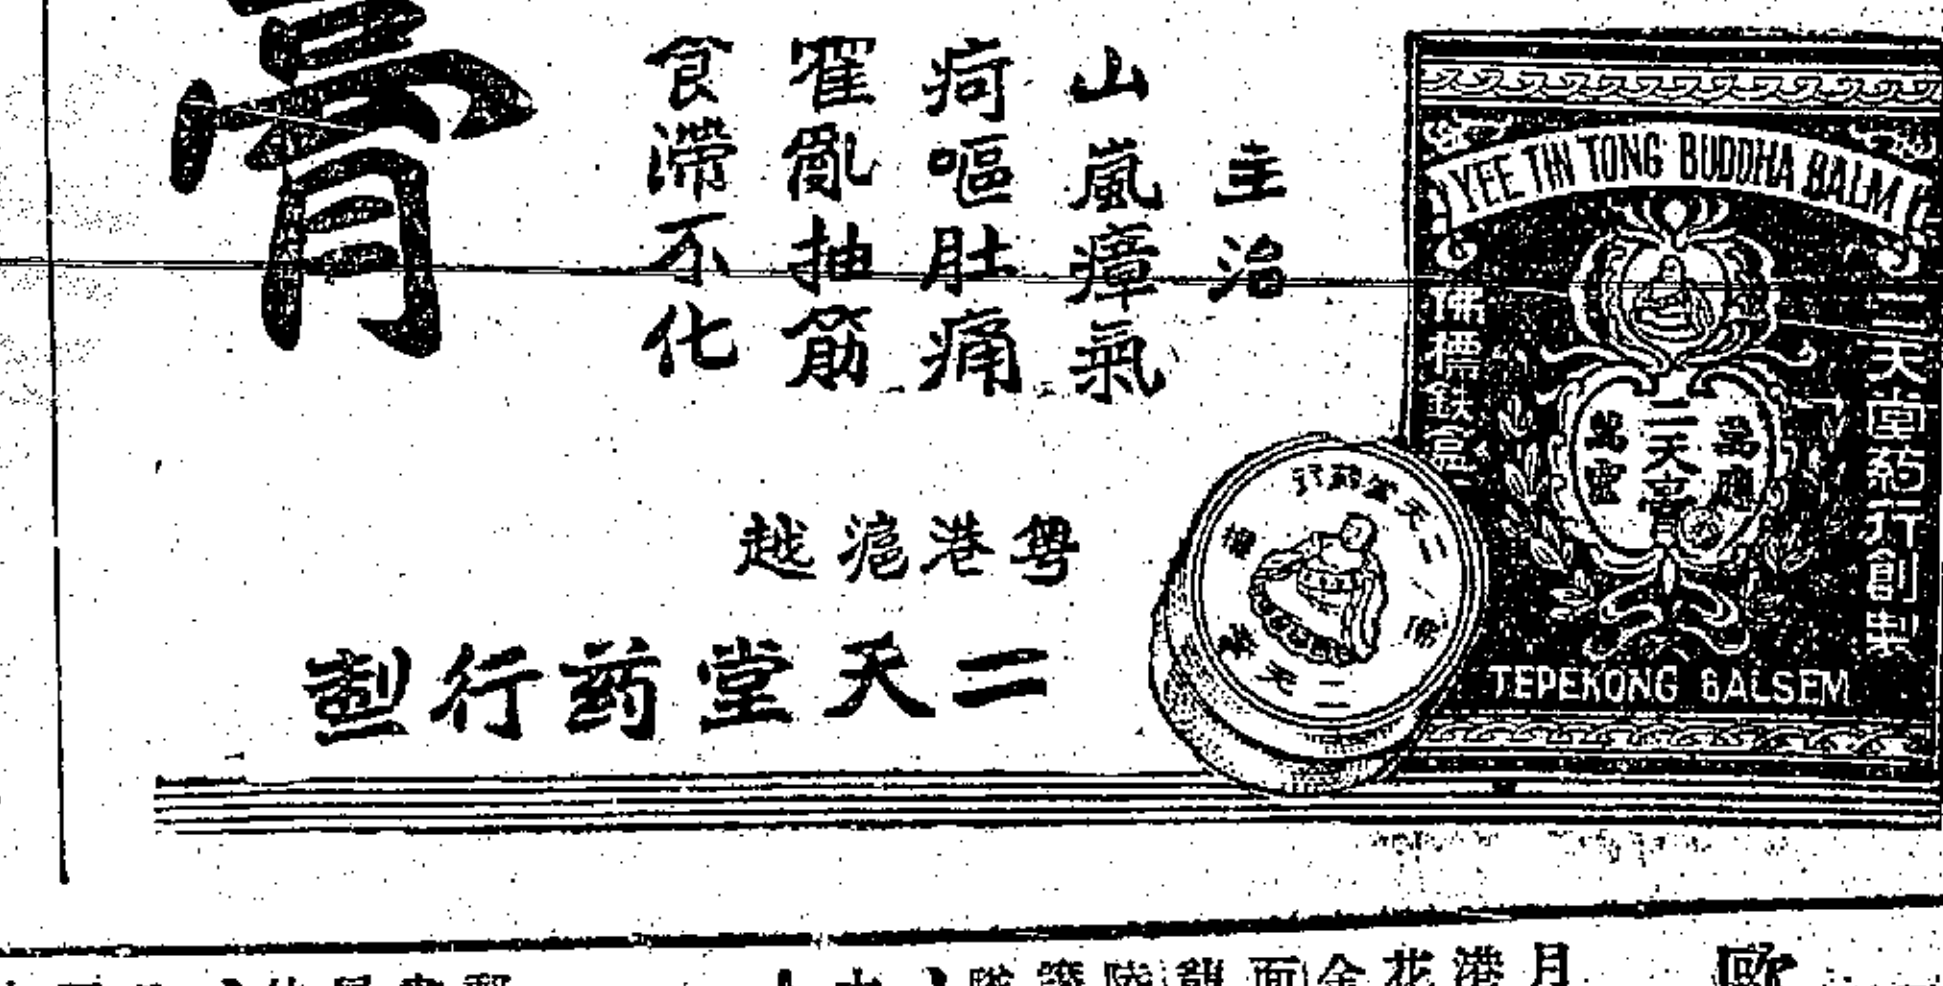 膏
主治
山嵐瘴氣
疴嘔肚痛
霍亂抽筋
食滯不化
粵港滬越
二天堂药行製
YEE TIN TONG BUDDHA BALM
二天堂药行創製
佛標鉄盒
萬應
二天膏
萬靈
TEPEKONG BALSEM
二天堂药行
佛
標
二天
歐
月港花金面